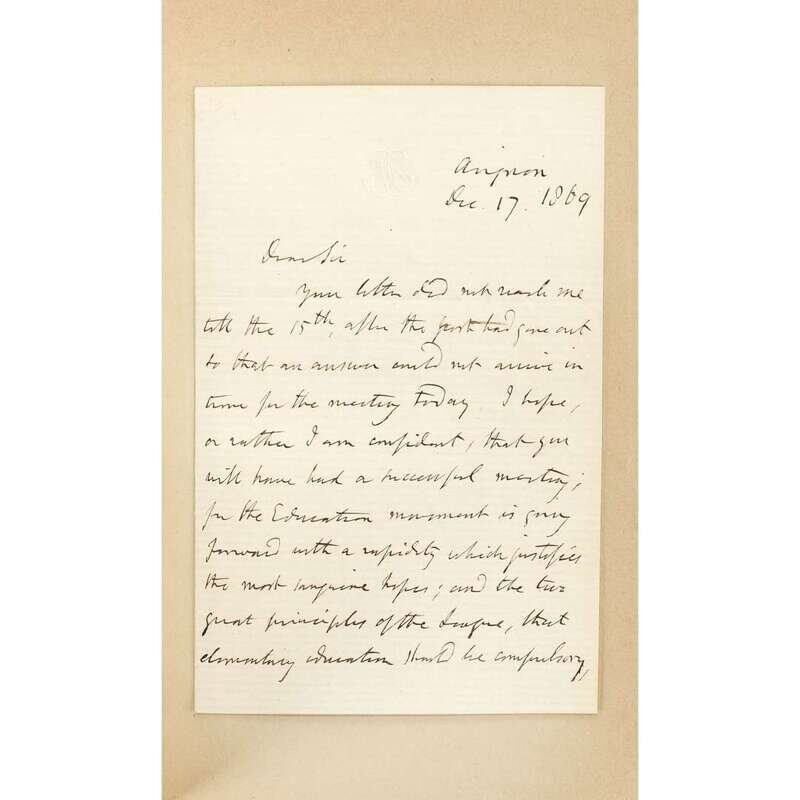 Avignon
Dec. 17. 1869
Dear Sir
Your letter did not reach me
till the 15th, after the post had gone out
so that an answer could not arrive in
time for the meeting today I hope,
or rather I am confident, that you
will have had a successful meeting;
for the Education movement is going
forward with a rapidity which justifies
the most sanguine hopes; and the two
great principles of the League, that
elementary education should be compulsory,